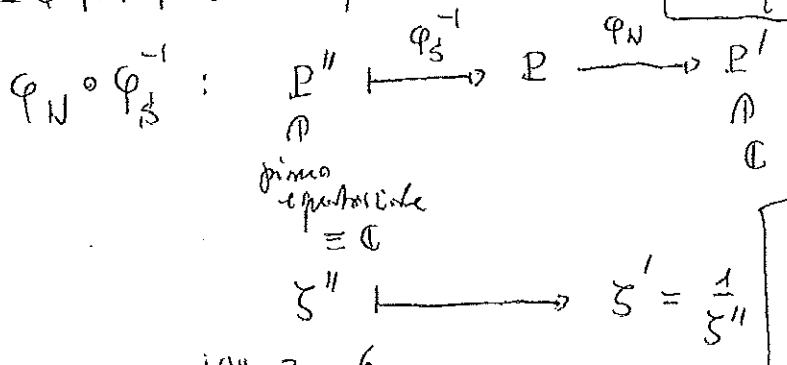 φ_N ∘ φ_S^{-1} : P'' ⟼ P ⟶ P'
φ_S^{-1} φ_N
⋒ ⋒
ℂ
piano
equatoriale
≡ ℂ
ζ'' ⟼ ζ' = 1/ζ''